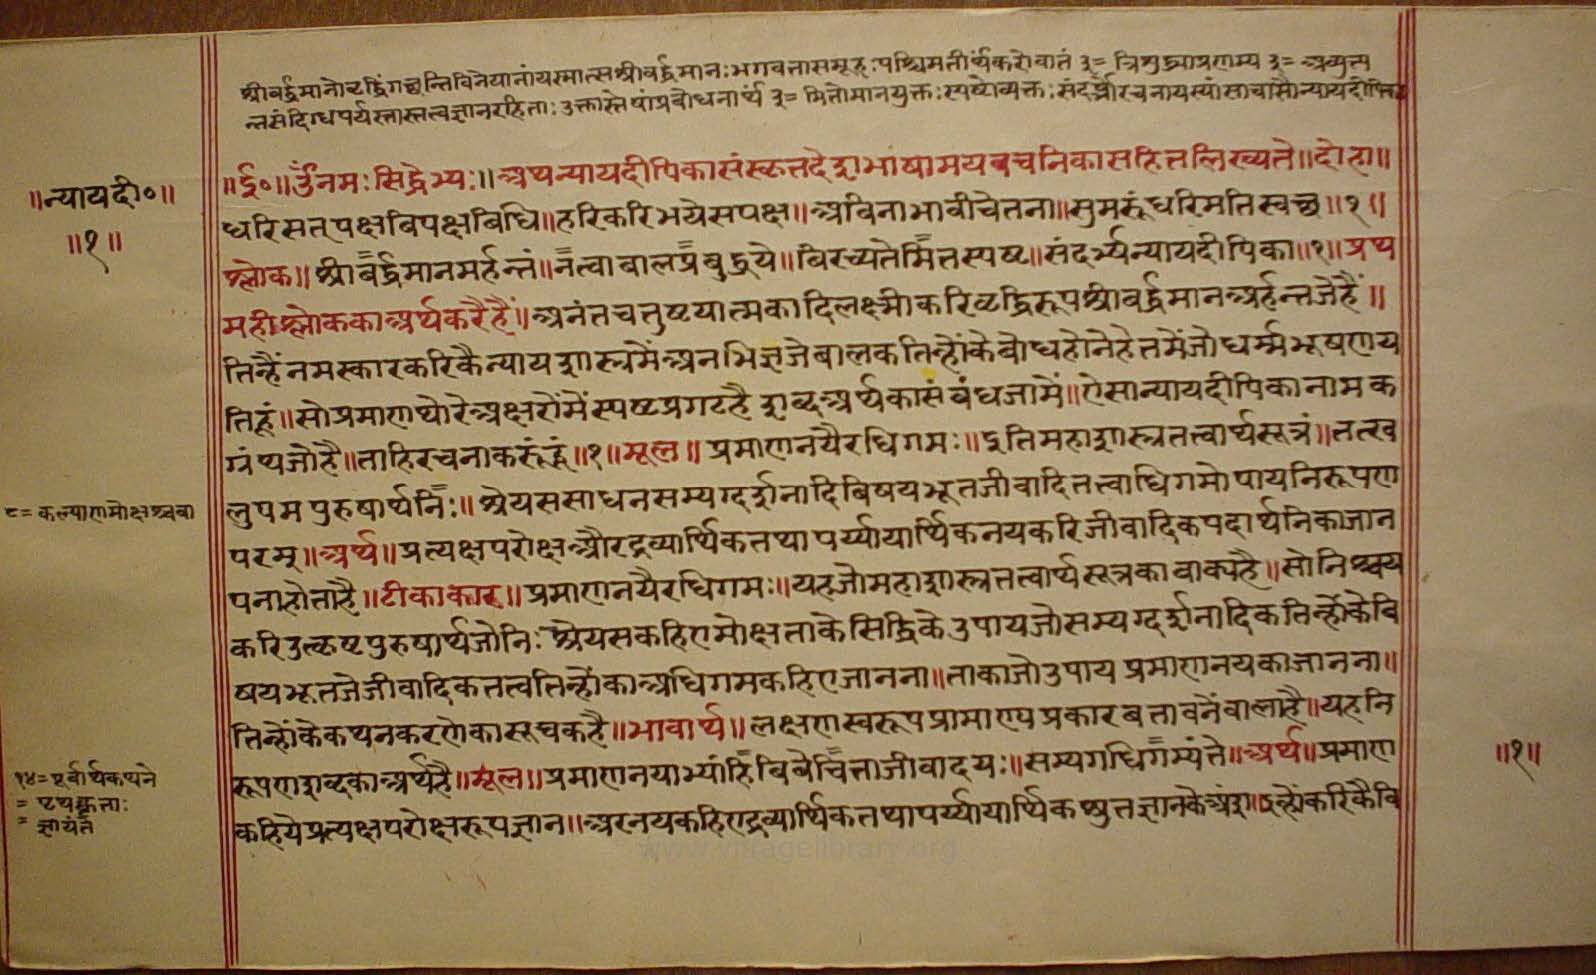 श्रीवर्द्धमानोवृद्धिंगछन्तिविनेयानांयस्मात्सश्रीवर्द्धमानः भगवत्तासमूहः पश्चिमतीर्थकरोवातं ३= त्रिशुद्ध्याप्रणम्य ३= अव्युत्प
न्नसंदिग्धपर्यस्तास्तत्त्वज्ञानरहिताः उक्तास्तेषांप्रबोधनार्थं ३= मितोमानयुक्तः स्पष्टोव्यक्तः संदर्भोरचनायस्यांसाचासौन्यायदीपिका
॥न्यायदी०॥
॥१॥
॥ई०॥ॐनमःसिद्धेभ्यः॥अथन्यायदीपिकासंस्कृतदेशभाषामयवचनिकासहितलिख्यते॥दोहा॥
धरिसत्पक्षबिपक्षबिधि॥हरिकरिभयेसपक्ष॥अबिनाभावीचेतना॥सुमरूंधरिमतिस्वच्छ॥१॥
श्लोक॥श्रीवर्द्धमानमर्हन्तं॥नत्वाबालप्रबुद्धये॥विरच्यतेमितस्पष्ट॥संदर्भ्यन्यायदीपिका॥१॥प्रथ
महीश्लोककाअर्थकरैहैं॥अनंतचतुष्टयात्मकादिलक्ष्मीकरिवृद्धिरूपश्रीवर्द्धमानअर्हन्तजेहैं॥
तिन्हैंनमस्कारकरिकैन्यायशास्त्रमेंअनभिज्ञजेबालकतिन्होंकेबोधहोनेहेतमेंजोधर्म्मभूषणय
तिहूं॥सोप्रमाणथोरेअक्षरोंमेंस्पष्टप्रगटहैशब्दअर्थकासंबंधजामें॥ऐसान्यायदीपिकानामक
ग्रंथजोहै॥ताहिरचनाकरूंहूं॥१॥मूल॥प्रमाणनयैरधिगमः॥इतिमहाशास्त्रतत्त्वार्थसूत्रं॥तत्ख
लुपमपुरुषार्थनिः॥श्रेयससाधनसम्यग्दर्शनादिबिषयभूतजीवादितत्त्वाधिगमोपायनिरूपण
८= कल्याणमोक्षअथवा
परम्॥अर्थ॥प्रत्यक्षपरोक्षऔरद्रव्यार्थिकतथापर्य्यायार्थिकनयकरिजीवादिकपदार्थनिकाजान
पनाहोताहै॥टीकाकार॥प्रमाणनयैरधिगमः॥यहजोमहाशास्त्रतत्त्वार्थसूत्रकावाक्यहै॥सोनिश्चय
करिउत्कृष्टपुरुषार्थजोनिःश्रेयसकहिएमोक्षताकेसिद्धिकेउपायजोसम्यग्दर्शनादिकतिन्होंकेबि
षयभूतजेजीवादिकतत्त्वतिन्होंकाअधिगमकहिएजानना॥ताकाजोउपायप्रमाणनयकाजानना॥
तिन्होंकेकथनकरणेकासूचकहै॥भावार्थ॥लक्षणस्वरूपप्रामाण्यप्रकारबतावनेंवालाहै॥यहनि
रूपणशब्दकाअर्थहै॥मूल॥प्रमाणनयाभ्यांहिबिबेचिताजीवादयः॥सम्यगधिगम्यंते॥अर्थ॥प्रमाण
कहियेप्रत्यक्षपरोक्षरूपज्ञान॥अरनयकहिएद्रव्यार्थिकतथापर्य्यायार्थिकश्रुतज्ञानकेअंश॥इन्होंकरिकैबि
१४= पूर्वार्थकथने
= पृथक्कृताः
= ज्ञायंते
॥१॥
www.vitragelibrary.org